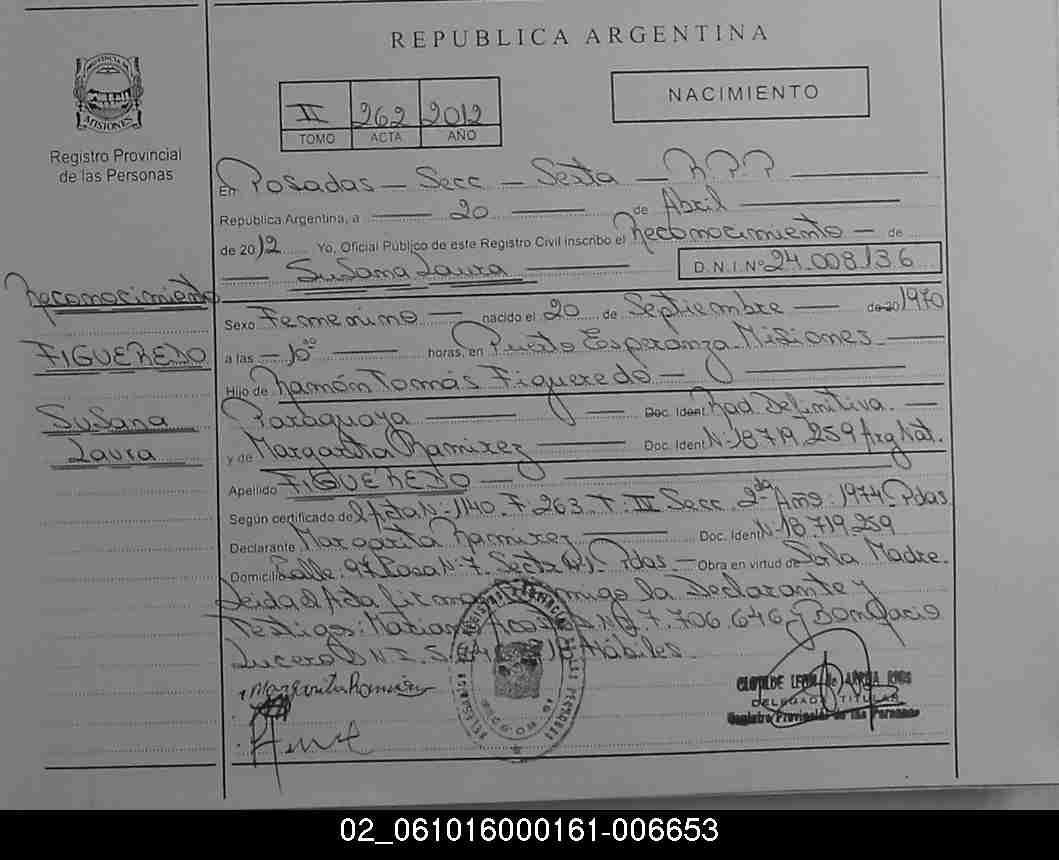 REPUBLICA ARGENTINA
PROVINCIA DE MISIONES
Registro Provincial
de las Personas
II 262 2012
TOMO ACTA AÑO
NACIMIENTO
En Posadas - Secc - Sexta - R.P.P
Republica Argentina, a 20 de Abril
de 2012 Yo, Oficial Público de este Registro Civil inscribo el Reconocimiento - de
Susana Laura D.N.I. Nº 24.008136
Reconocimiento
FIGUEREDO
Susana
Laura
Sexo Femenino - nacido el 20 de Septiembre - de 20 1970
a las - 10 00 horas, en Puerto Esperanza - Misiones -
Hijo de Ramón Tomás Figueredo -
Paraguaya - Doc. Ident. Rad. Definitiva. -
y de Margarita Ramirez - Doc. Ident. Nº 18.719.259 Arg Nat.
Apellido FIGUEREDO -
Según certificado de Acta Nº 1140. F. 263. T. III Secc. 2da Año 1974 Pdas
Declarante Margarita Ramirez Doc. Ident. Nº 18.719.259
Domicilio Calle. 97 Casa Nº 7. Pdas. - Obra en virtud de Ser la Madre.
Leida el Acta firman conmigo la Declarante y
Testigos: 7.706.646 y Bonifacio
Lucero D N I. Hábiles.
Margarita Ramirez
CLOTILDE RIOS
DELEGADA TITULAR
Registro Provincial de las Personas
02_061016000161-006653